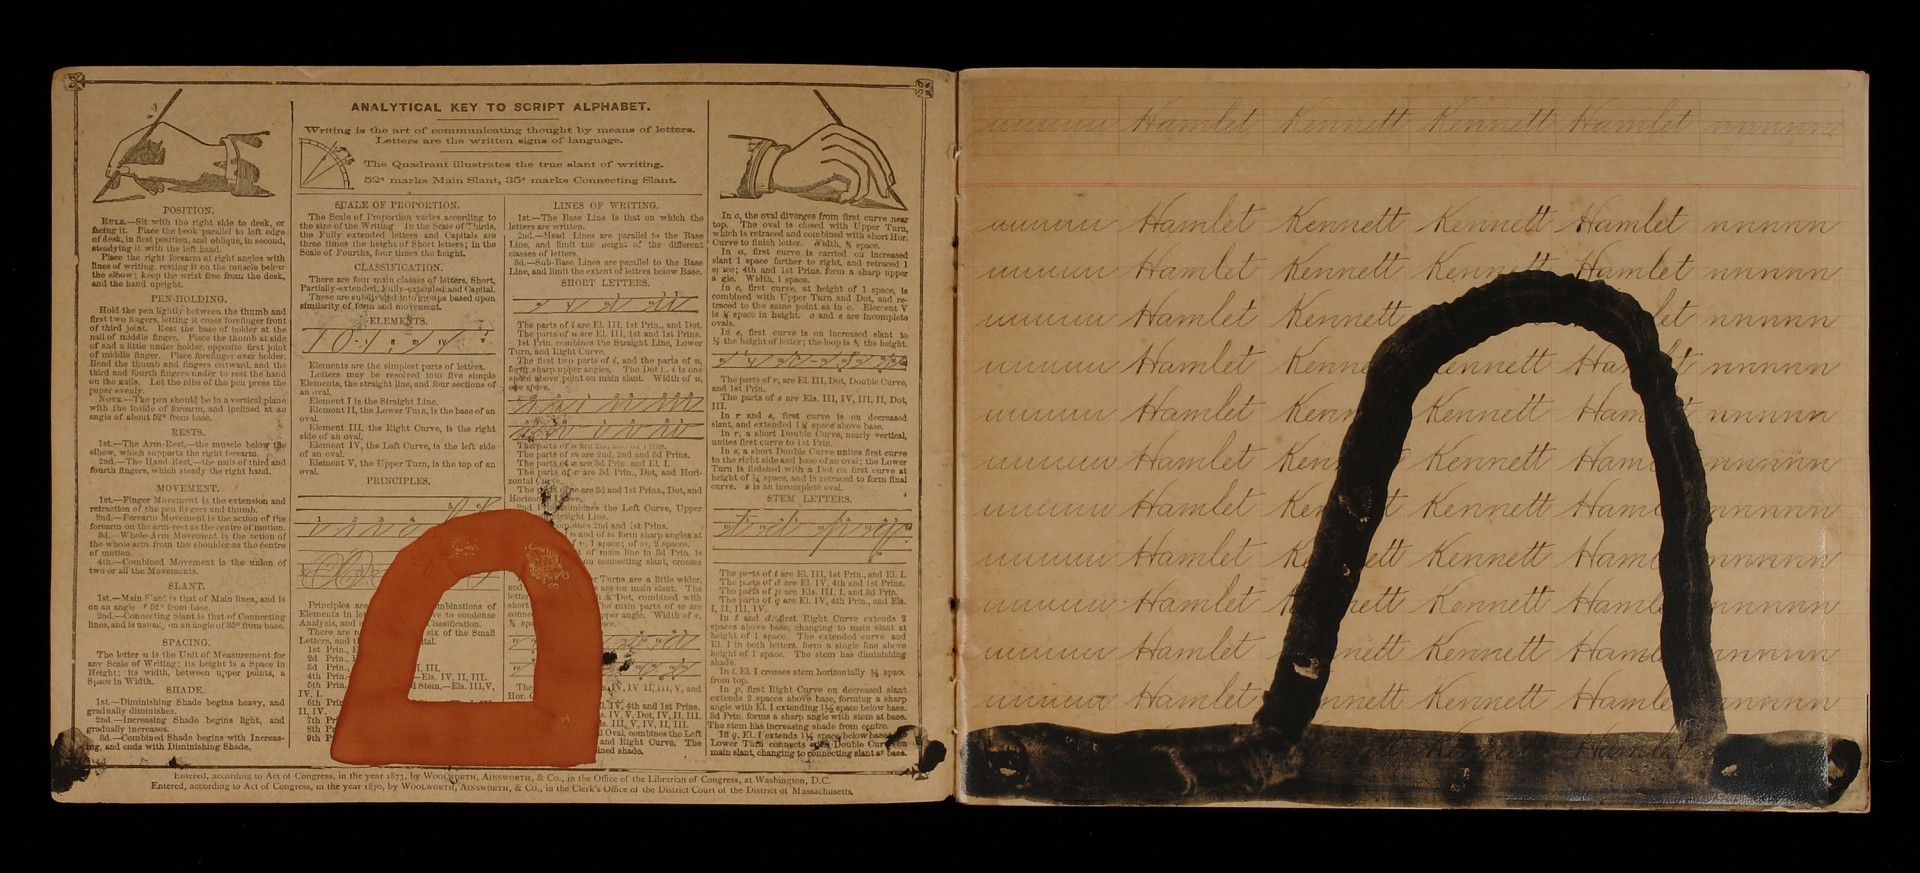 ANALYTICAL KEY TO SCRIPT ALPHABET.
Writing is the art of communicating thought by means of letters.
Letters are the written signs of language.
The Quadrant illustrates the true slant of writing.
52° marks Main Slant, 35° marks Connecting Slant.
POSITION.
RULE.—Sit with the right side to desk, or
facing it. Place the book parallel to left edge
of desk, in first position, and oblique, in second,
steadying it with the left hand.
Place the right forearm at right angles with
lines of writing, resting it on the muscle below
the elbow; keep the wrist free from the desk,
and the hand upright.
PEN-HOLDING.
Hold the pen lightly between the thumb and
first two fingers, letting it cross forefinger front
of third joint. Rest the base of holder at the
nail of middle finger. Place the thumb at side
of and a little under holder, opposite first joint
of middle finger. Place forefinger over holder.
Bend the thumb and fingers outward, and the
third and fourth fingers under to rest the hand
on the nails. Let the nibs of the pen press the
paper evenly.
NOTE.—The pen should be in a vertical plane
with the inside of forearm, and inclined at an
angle of about 52° from base.
RESTS.
1st.—The Arm-Rest,—the muscle below the
elbow, which supports the right forearm.
2nd.—The Hand-Rest,—the nails of third and
fourth fingers, which steady the right hand.
MOVEMENT.
1st.—Finger Movement is the extension and
retraction of the pen fingers and thumb.
2nd.—Forearm Movement is the action of the
forearm on the arm-rest as the centre of motion.
3d.—Whole-Arm Movement is the action of
the whole arm from the shoulder as the centre
of motion.
4th.—Combined Movement is the union of
two or all the Movements.
SLANT.
1st.—Main Slant is that of Main lines, and is
on an angle of 52° from base.
2nd.—Connecting Slant is that of Connecting
lines, and is usually on an angle of 35° from base.
SPACING.
The letter u is the Unit of Measurement for
any Scale of Writing; its height is a Space in
Height; its width, between upper points, a
Space in Width.
SHADE.
1st.—Diminishing Shade begins heavy, and
gradually diminishes.
2nd.—Increasing Shade begins light, and
gradually increases.
3d.—Combined Shade begins with Increas-
ing, and ends with Diminishing Shade.
SCALE OF PROPORTION.
The Scale of Proportion varies according to
the size of the Writing In the Scale of Thirds,
the Fully extended letters and Capitals are
three times the height of Short letters; in the
Scale of Fourths, four times the height.
CLASSIFICATION.
There are four main classes of letters, Short,
Partially-extended, Fully-extended and Capital.
These are subdivided into groups based upon
similarity of form and movement.
ELEMENTS.
Elements are the simplest parts of letters.
Letters may be resolved into five simple
Elements, the straight line, and four sections of
an oval.
Element I is the Straight Line.
Element II, the Lower Turn, is the base of an
oval.
Element III, the Right Curve, is the right
side of an oval.
Element IV, the Left Curve, is the left side
of an oval.
Element V, the Upper Turn, is the top of an
oval.
PRINCIPLES.
1 2 3 4
Principles are
Elements in
Analysis, and
There are
Letters, and
1st Prin.,
2d Prin.,
3d Prin.,
4th Prin.
5th Prin.
IV, I.
6th Prin
II, IV.
7th Pr
8th Pr
9th P
LINES OF WRITING.
1st.—The Base Line is that on which the
letters are written.
2nd.—Head Lines are parallel to the Base
Line, and limit the height of the different
classes of letters.
3d.—Sub-Base Lines are parallel to the Base
Line, and limit the extent of letters below Base.
SHORT LETTERS.
The parts of i are El. III, 1st Prin., and Dot.
The parts of u are El. III, 1st and 1st Prins.
1st Prin. combines the Straight Line, Lower
Turn, and Right Curve.
The first two parts of i, and the parts of u,
form sharp upper angles. The Dot i, is one
space above point on main slant. Width of u,
one space.
The parts of m are 2nd, 2nd and 3d Prins.
The parts of x are 3d Prin. and El. I.
The parts of v are 3d Prin., Dot, and Hori-
zontal Curve.
are 3d and 1st Prins., Dot, and
Horizontal Curve.
combines the Left Curve, Upper
Straight Line.
combines 2nd and 1st Prins.
and of m form sharp angles at
1 space; of m, 2 spaces.
of main line in 3d Prin. is
on connecting slant, crosses
Turns are a little wider,
are on main slant. The
Dot, combined with
main parts of w are
upper angle. Width of v,
In o, the oval diverges from first curve near
top. The oval is closed with Upper Turn,
which is retraced and combined with short Hor.
Curve to finish letter. Width, ½ space.
In a, first curve is carried on increased
slant 1 space farther to right, and retraced 1
space; 4th and 1st Prins. form a sharp upper
angle. Width, 1 space.
In c, first curve, at height of 1 space, is
combined with Upper Turn and Dot, and re-
traced to the same point as in o. Element V
is ½ space in height. c and e are incomplete
ovals.
In e, first curve is on increased slant to
height of letter; the loop is ⅔ the height.
The parts of r, are El. III, Dot, Double Curve,
and 1st Prin.
The parts of s are Els. III, IV, III, II, Dot,
III.
In r and s, first curve is on decreased
slant, and extended 1¼ space above base.
In r, a short Double Curve, nearly vertical,
unites first curve to 1st Prin.
In s, a short Double Curve unites first curve
to the right side and base of an oval; the Lower
Turn is finished with a Dot on first curve at
height of ¼ space, and is retraced to form final
curve. s is an incomplete oval.
STEM LETTERS.
The parts of t are El. III, 1st Prin., and El. I.
The parts of d are El. IV, 4th and 1st Prins.
The parts of p are Els. III, I, and 3d Prin.
The parts of q are El. IV, 4th Prin., and Els.
I, II, III, IV.
In t and d, first Right Curve extends 2
spaces above base, changing to main slant at
height of 1 space. The extended curve and
El. I in both letters, form a single line above
height of 1 space. The stem has diminishing
shade.
In t, El. I crosses stem horizontally ½ space
from top.
In p, first Right Curve on decreased slant
extends 2 spaces above base, forming a sharp
angle with El. I extending 1½ space below base.
3d Prin. forms a sharp angle with stem at base.
The stem has increasing shade from centre.
In q, El. I extends 1½ space below base;
Lower Turn connects with Double Curve on
main slant, changing to connecting slant at base.
Entered, according to Act of Congress, in the year 1873, by WOOLWORTH, AINSWORTH, & CO., in the Office of the Librarian of Congress, at Washington, D.C.
Entered, according to Act of Congress, in the year 1870, by WOOLWORTH, AINSWORTH, & CO., in the Clerk's Office of the District Court of the District of Massachusetts.
uuuuuu Hamlet Kennett Kennett Hamlet nnnnnn
uuuuuu Hamlet Kennett Kennett Hamlet nnnnnn
uuuuuu Hamlet Kennett Kennett Hamlet nnnnnn
uuuuuu Hamlet Kennett let nnnnnn
uuuuuu Hamlet Kenne ennett Ham t nnnnnn
uuuuuu Hamlet Kenn Kennett Ham t nnnnnn
uuuuuu Hamlet Ken Kennett Ham nnnnnn
uuuuuu Hamlet Ken t Kennett Ham nnnnnn
uuuuuu Hamlet K ett Kennett Ham nnnnnn
uuuuuu Hamlet nett Kennett Haml nnnnnn
uuuuuu Hamlet nnett Kennett Haml nnnnnn
uuuuuu Hamlet nnett Kennett Haml nnnnnn
Hamlet